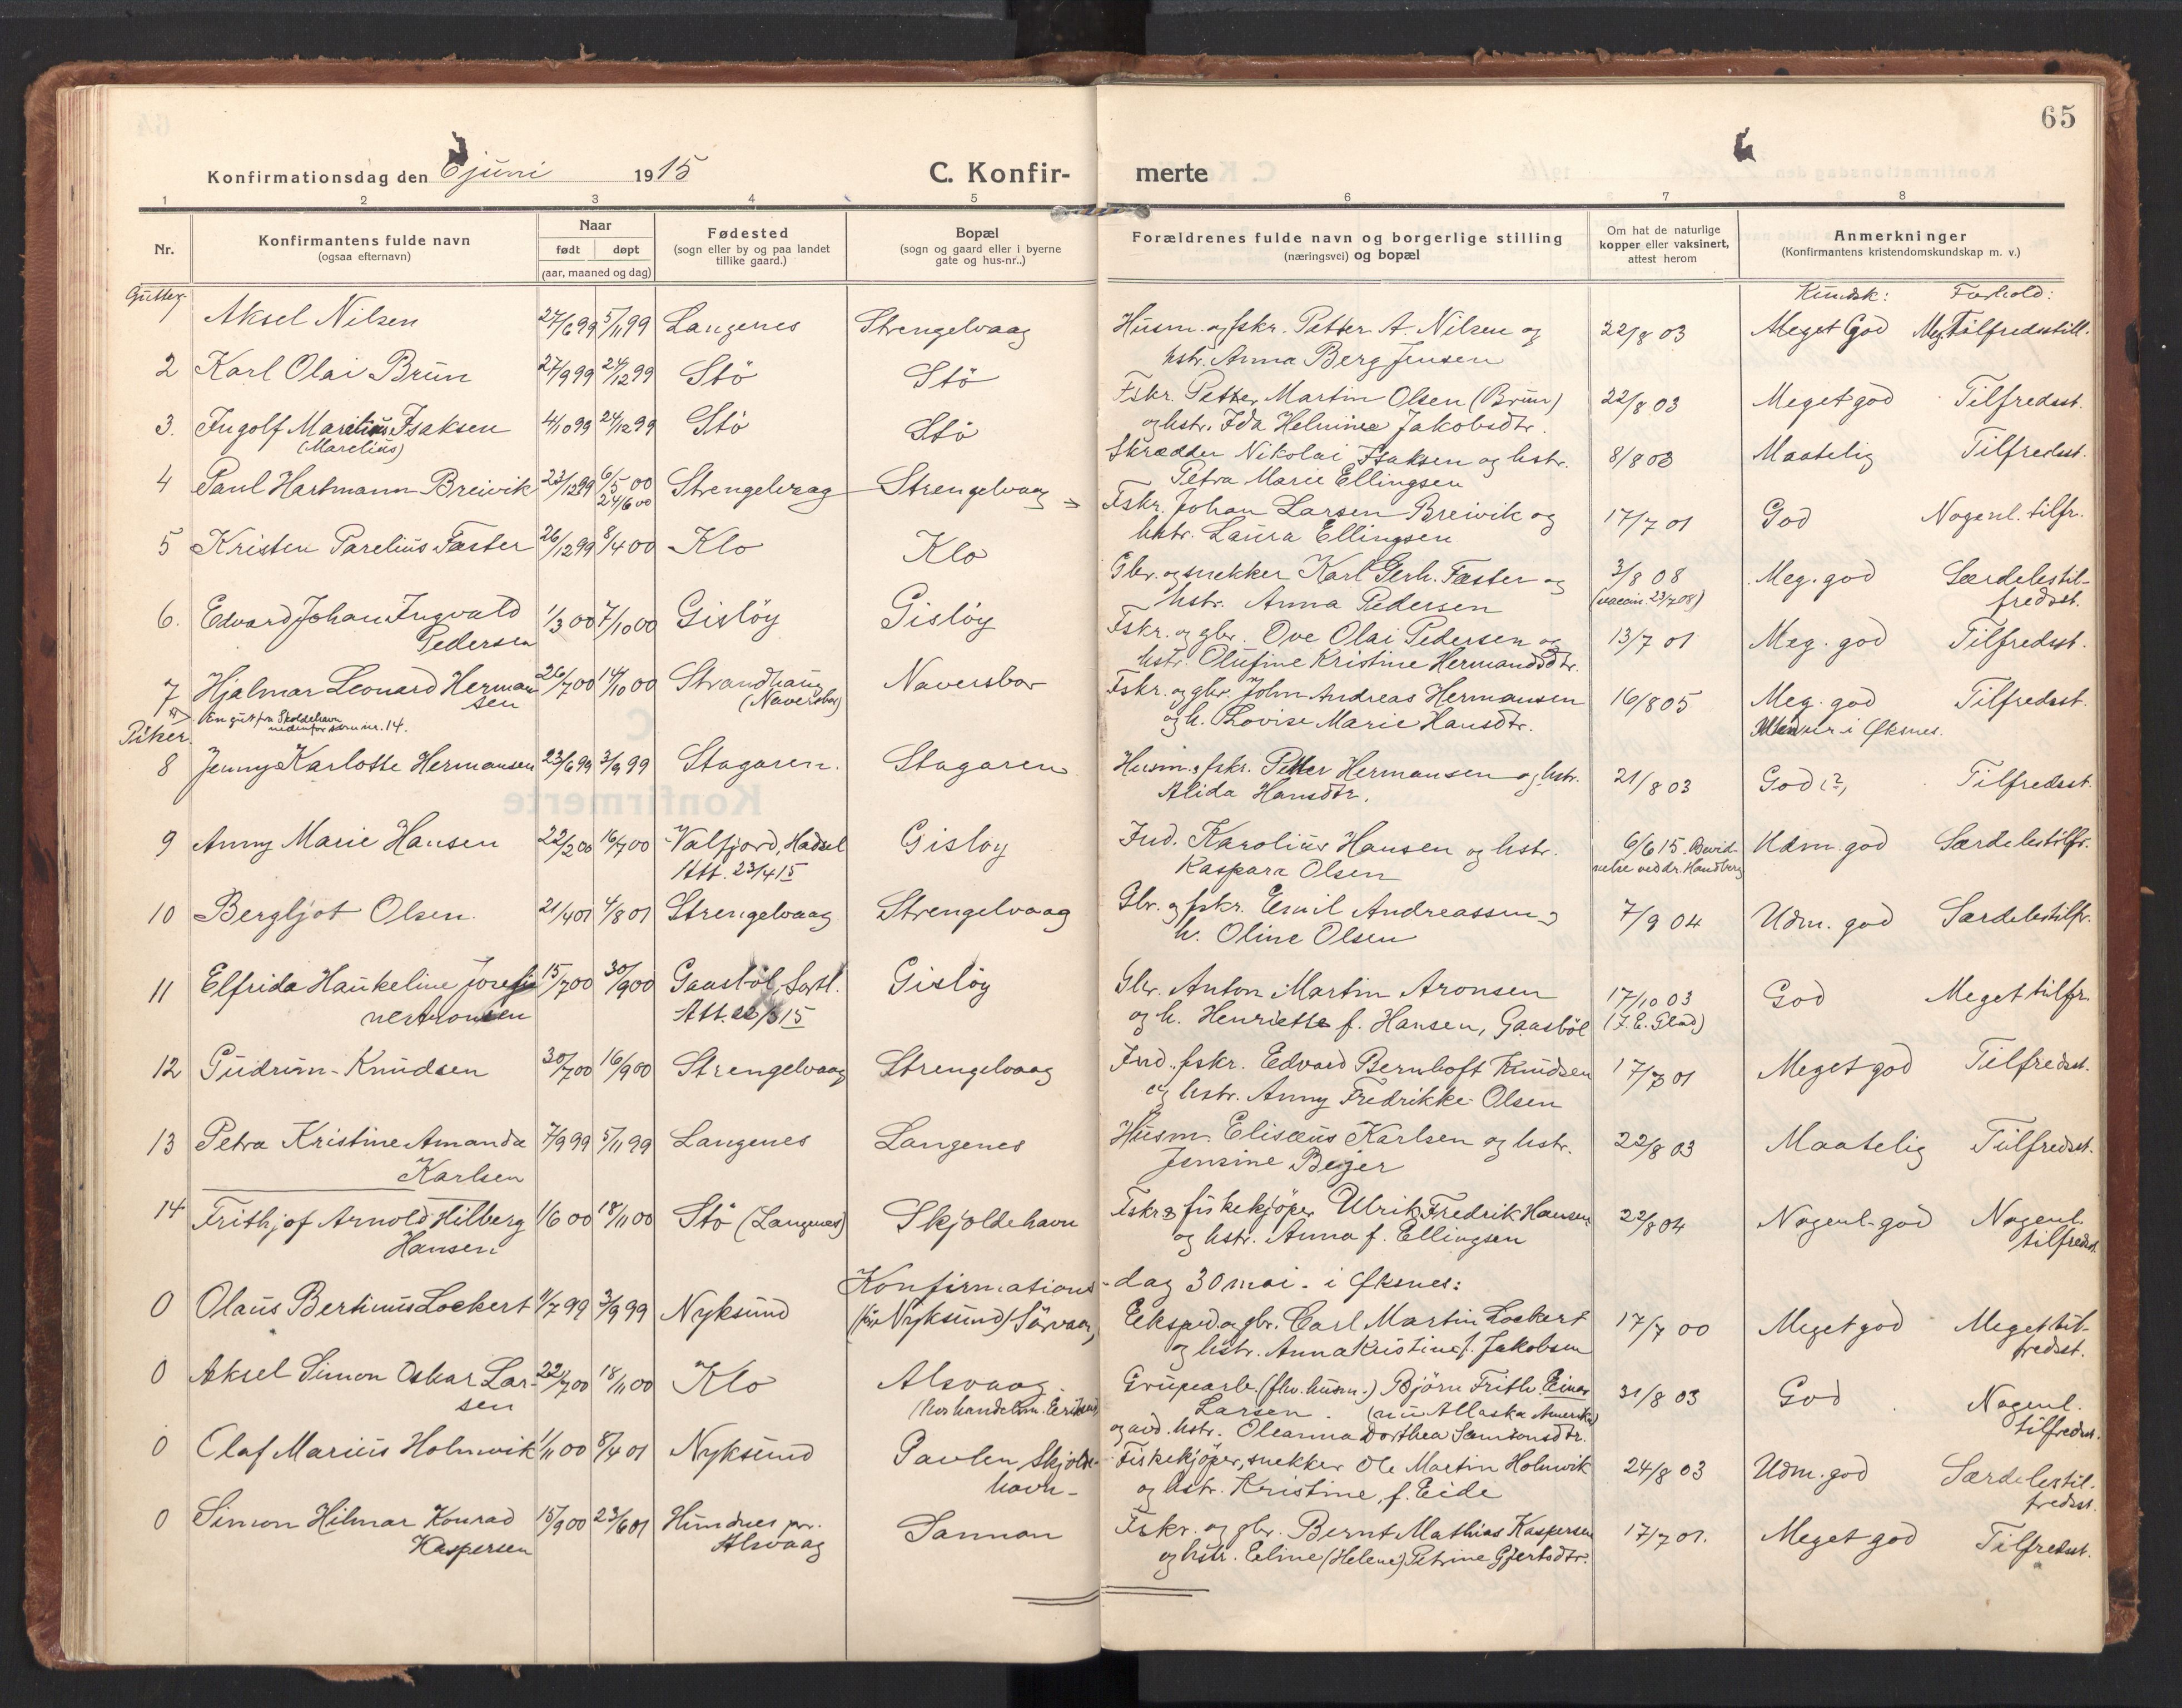 65
Konfirmationsdag den 6 juni 1915 C. Konfir- merte
1 2 3 4 5 6 7 8
Nr. Konfirmantens fulde navn (ogsaa efternavn) Naar født døpt (aar, maaned og dag) Fødested (sogn eller by og paa landet tillike gaard.) Bopæl (sogn og gaard eller i byerne gate og hus-nr..) Forældrenes fulde navn og borgerlige stilling (næringsvei) og bopæl Om hat de naturlige kopper eller vaksinert, attest herom Anmerkninger (Konfirmantens kristendomskundskap m. v.)
Gutter. Kundsk: Forhold:
1 Aksel Nilsen 27/6 99 5/11 99 Langenes Strengelvaag Husm. og fskr. Petter A. Nilsen og 22/8 03 Meget God Meg. Tilfredsstill.
hstr. Anna Berg Jensen
2 Karl Olai Brun 27/9 99 24/12 99 Stö Stö Fskr. Petter Martin Olsen (Brun) 22/8 03 Meget god Tilfredsst.
og hstr. Ida Helmine Jakobsdtr.
3. Ingolf Marelius Isaksen 4/10 99 24/12 99 Stö Stö Skrædder Nikolai Isaksen og hstr. 8/8 03 Maatelig Tilfredsst.
(Marelius) Petra Marie Ellingsen
4 Paul Hartmann Breivik 23/12 99 6/5 00 Strengelvaag Strengelvaag Fskr. Johan Larsen Breivik og 17/7 01 God Nogenl. tilfr.
24/6 00 hstr. Laura Ellingsen
5 Kristen Parelius Fæster 26/12 99 8/4 00 Klo Klo Gbr. og snekker Karl Gerh. Fæster og 3/8 08 Meg. god Særdeles til-
hstr. Anna Pedersen (vaccin. 23/7 08) fredsst.
6. Edvard Johan Ingvald 1/3 00 7/10 00 Gislöy Gislöy Fskr. og gbr. Ove Olai Pedersen og 13/7 01 Meg. god Tilfredsst.
Pedersen hstr. Olufine Kristine Hermandsdtr.
7 Hjalmar Leonard Herman- 26/7 00 14/10 00 Strandhaug Naversbor Fskr. og gbr. John Andreas Hermansen 16/8 05 Meg. god Tilfredsst.
sen (Naversbor) og h. Lovise Marie Hansdtr. i Øksnes.
En gut fra Skoldehavn
nedenfor som nr. 14.
Piker.
8 Jenny Karlotte Hermansen 23/6 99 3/9 99 Stagaren. Stagaren Husm. fskr. Petter Hermansen og hstr. 21/8 03 God (?) Tilfredsst.
Alida Hansdtr.
9 Anny Marie Hansen 22/2 00 16/7 00 Valfjord, Hadsel Gisloy Ind. Karolius Hansen og hstr. 6/6 15. Bevid- Udm. god Særdeles tilfr.
Att. 23/4 15 Kaspara Olsen nelse ved dr. Handberg
10 Bergljot Olsen. 21/4 01 4/8 01 Strengelvaag Strengelvaag Gbr. og fskr. Emil Andreassen og 7/9 04 Udm. god Særdeles tilfr.
h. Oline Olsen
11 Elfrida Haukeline Josefi- 15/7 00 30/9 00 Gaasböl, Sortl. Gislöy Gbr. Anton Martin Aronsen 17/10 03 God Meget tilfr.
ne Aronsen Att. 22/3 15 og h. Henriette f. Hansen, Gaasböl (F. E. Glad)
12 Gudrun Knudsen 30/7 00 16/9 00 Strengelvaag Strengelvaag Ind. fskr. Edvard Bernhoft Knudsen 17/7 01 Meget god Tilfredsst.
og hstr. Anny Fredrikke Olsen
13 Petra Kristine Amanda 7/9 99 5/11 99 Langenes Langenes Husm. Elisæus Karlsen og hstr. 22/8 03 Maatelig Tilfredsst.
Karlsen Jensine Beyer
14 Frithjof Arnold Hilberg 1/6 00 18/11 00 Stö (Langenes) Skjoldehavn Fskr. og fiskekjöper Ulrik Fredrik Hansen 22/8 04 Nogenl. god Nogenl.
Hansen og hstr. Anna f. Ellingsen tilfredsst.
Konfirmations- dag 30 mai. i Øksnes:
0 Olaus Bertinus Lockert 1/7 99 3/9 99 Nyksund (för Nyksund) Sörvaag Eksped. og gbr. Carl Martin Lockert 17/7 00 Meget god Meget til-
og hstr. Anna Kristine f. Jakobsen fredsst.
0 Aksel Simon Oskar Lar- 22/7 00 18/11 00 Klo Alsvaag Grubearb. (fhv. husm.) Björn Frith. Einar 31/8 03 God Nogenl.
sen (hos handelsm. Eriksen) Larsen. (nu Allaska Amerika) tilfredsst.
og avd. hstr. Oleanna Dorthea Samsonsdtr.
0 Olaf Marius Holmvik 1/11 00 8/4 01 Nyksund Pavlen, Skjolde- Fiskekjöper, snekker Ole Martin Holmvik 24/8 03 Udm. god Særdeles til-
havn og hstr. Kristine f. Eide fredsst.
0 Simon Hilmar Konrad 15/9 00 23/6 01 Hundnes pr. Sannan Fskr. og gbr. Bernt Mathias Kaspersen 17/7 01. Meget god Tilfredsst.
Kaspersen Alsvaag og hstr. Eline (Helene) Petrine Gjertsdtr.